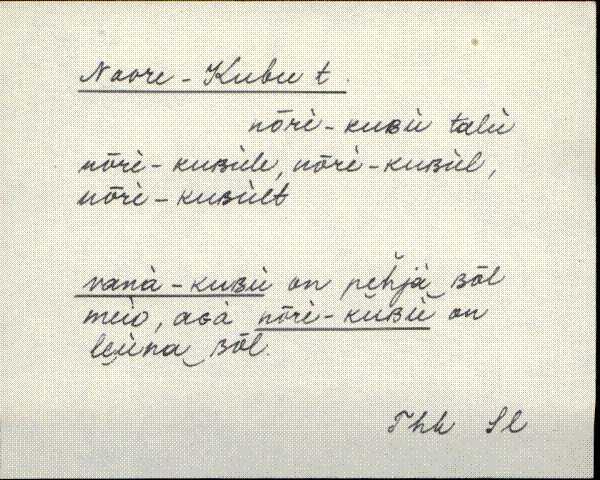 Noore-Kubu t.
nōrè-kuʙù talù
nōrè-kuʙùle, nōrè-kuʙùl,
nōrè-kuʙùlt
vanà-kuʙù on pehjà ʙōl
meìo, aɢà nōrè-kuʙù on
leùna ʙōl.
Thk Sl